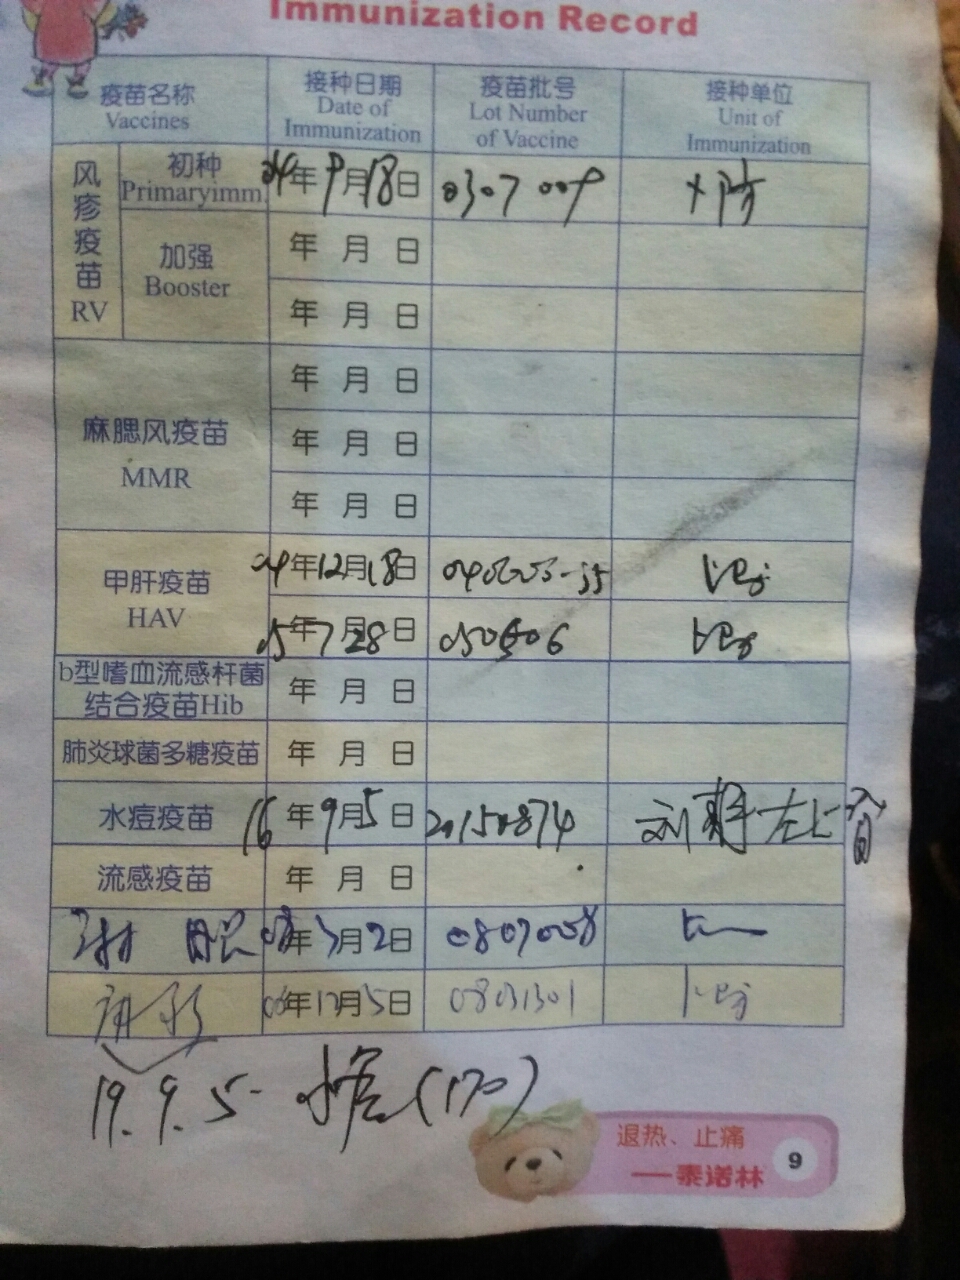 Immunization Record
疫苗名称 接种日期 疫苗批号 接种单位
Vaccines Date of Immunization Lot Number of Vaccine Unit of Immunization
风疹疫苗 RV 初种 Primaryimm. 04年9月18日 0307009
加强 Booster 年 月 日
年 月 日
麻腮风疫苗 MMR 年 月 日
年 月 日
年 月 日
甲肝疫苗 HAV 04年12月18日
05年7月28日 050606
b型嗜血流感杆菌结合疫苗Hib 年 月 日
肺炎球菌多糖疫苗 年 月 日
水痘疫苗 16年9月5日 20150874
流感疫苗 年 月 日
年 月2日 0807008
年12月5日 08031301
19.9.5
退热、止痛
——泰诺林
9